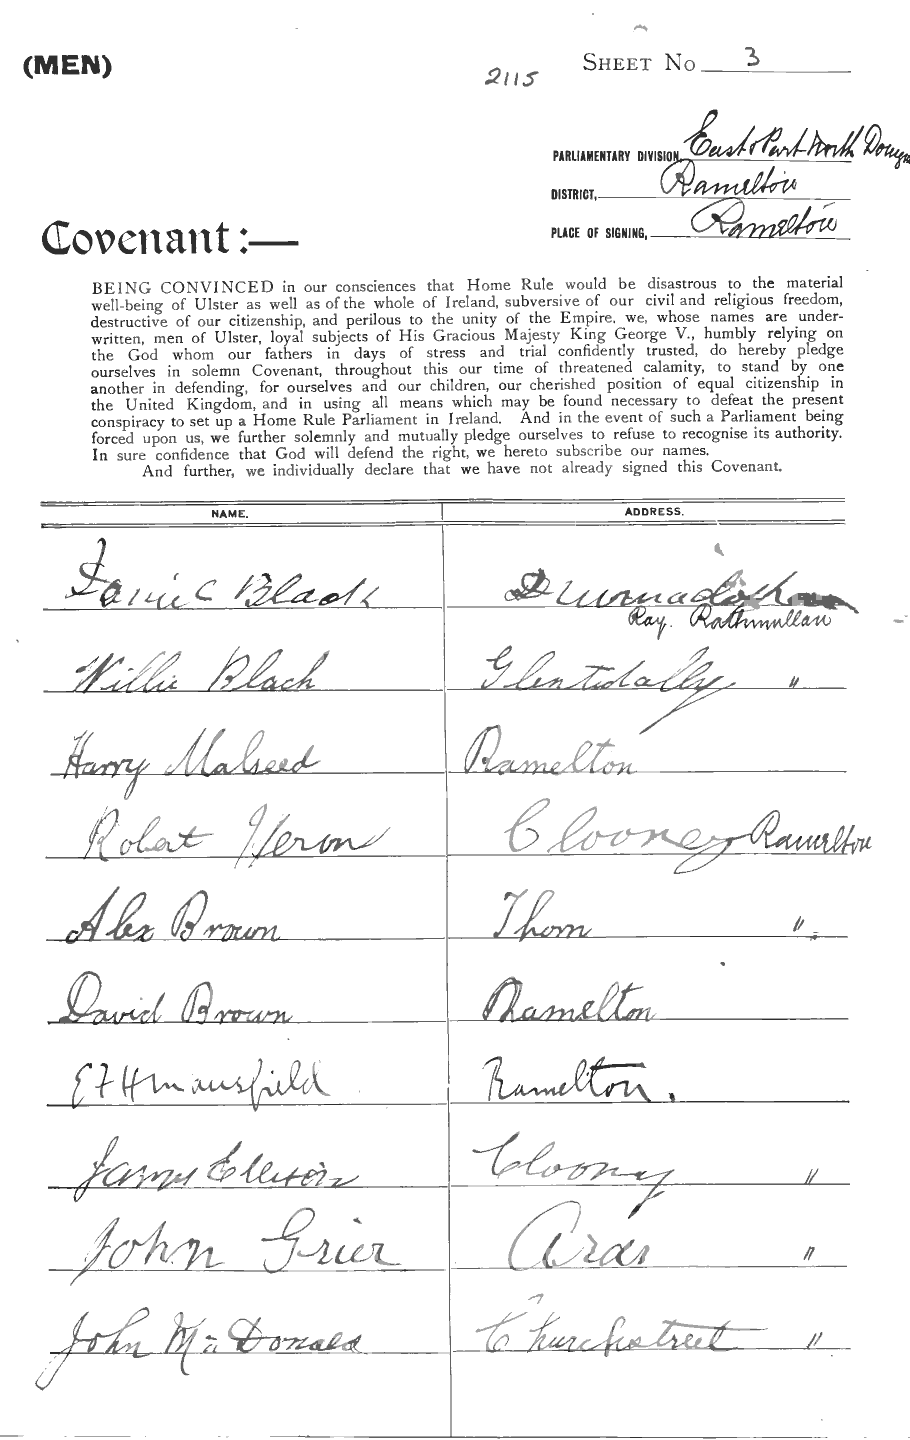 (MEN)
SHEET NO 3
2115
PARLIAMENTARY DIVISION, East & Part North Donegal
DISTRICT, Ramelton
PLACE OF SIGNING, Ramelton
Covenant:—
BEING CONVINCED in our consciences that Home Rule would be disastrous to the material
well-being of Ulster as well as of the whole of Ireland, subversive of our civil and religious freedom,
destructive of our citizenship, and perilous to the unity of the Empire, we, whose names are under-
written, men of Ulster, loyal subjects of His Gracious Majesty King George V., humbly relying on
the God whom our fathers in days of stress and trial confidently trusted, do hereby pledge
ourselves in solemn Covenant, throughout this our time of threatened calamity, to stand by one
another in defending, for ourselves and our children, our cherished position of equal citizenship in
the United Kingdom, and in using all means which may be found necessary to defeat the present
conspiracy to set up a Home Rule Parliament in Ireland. And in the event of such a Parliament being
forced upon us, we further solemnly and mutually pledge ourselves to refuse to recognise its authority.
In sure confidence that God will defend the right, we hereto subscribe our names.
And further, we individually declare that we have not already signed this Covenant.
NAME. ADDRESS.
Black
Ray. Rathmullan
Willie Black Glentidally "
Harry Malseed Ramelton
Robert Heron Clooney Ramelton
Alex Brown Thorn "
David Brown Ramelton
E F H Mansfield Ramelton.
James Ellison Clooney "
John Grier Aras "
John MacDonald Churchstreet "